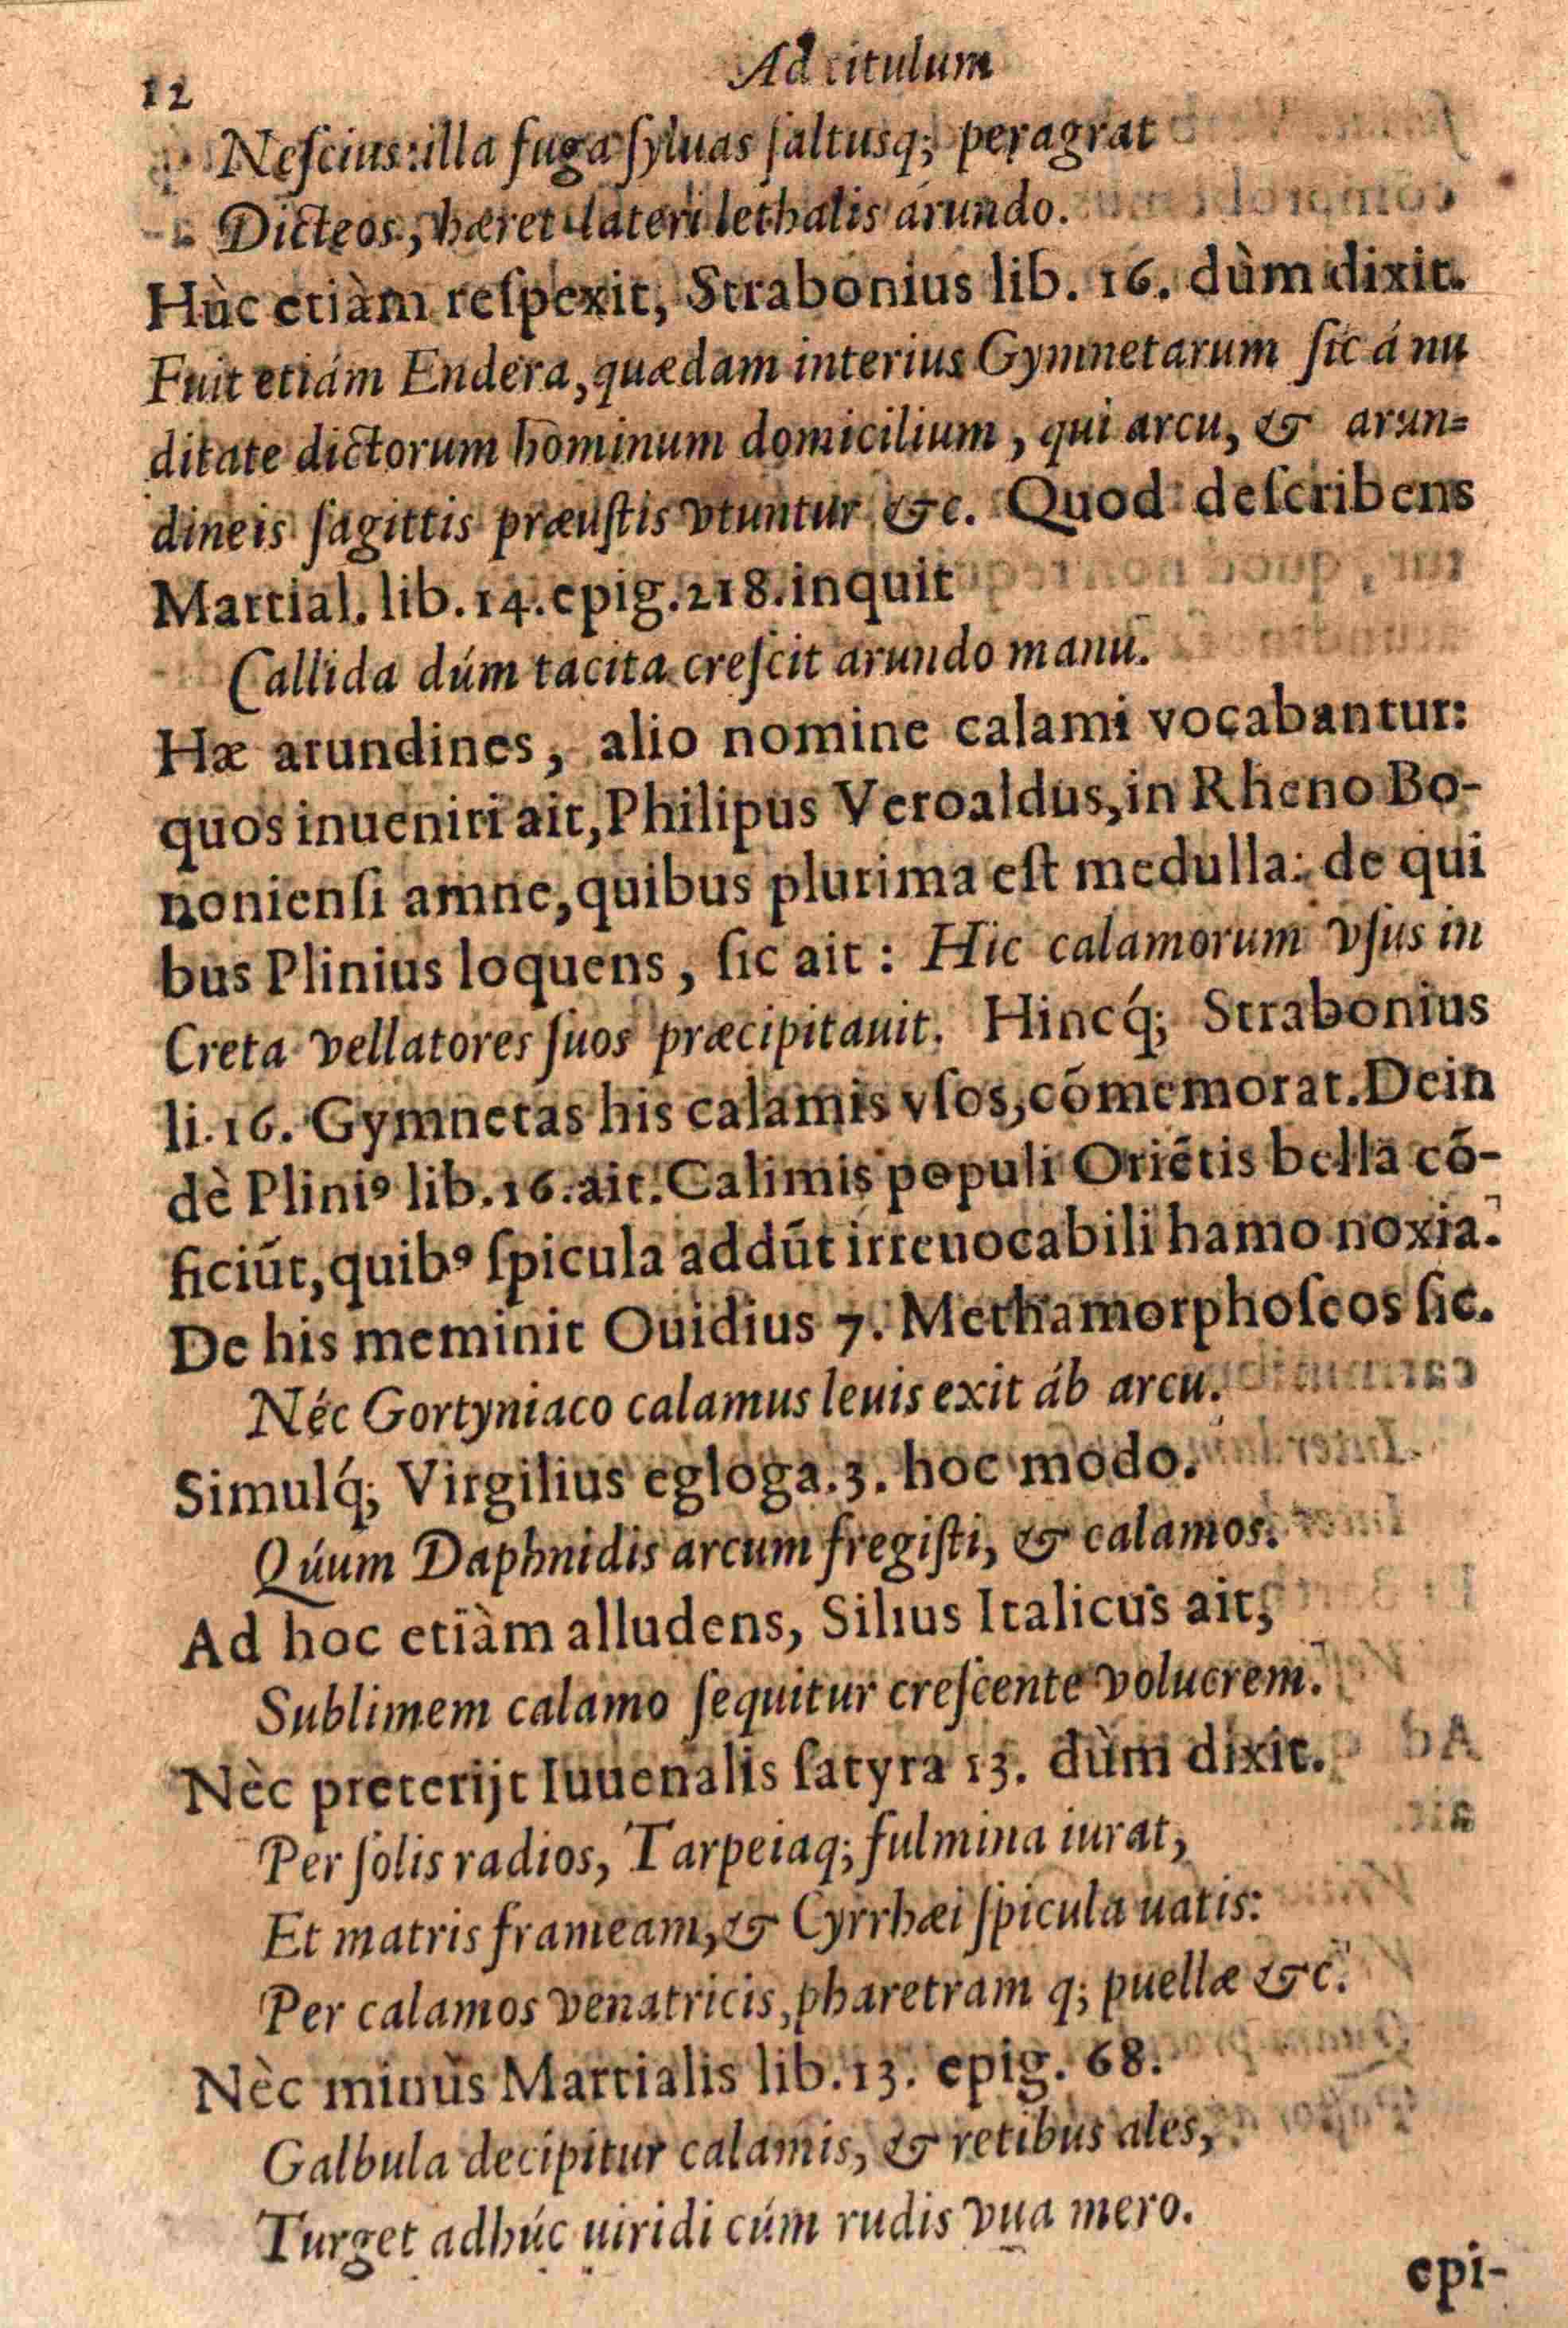 12
Ad titulum
Neſcius: illa fuga ſyluas ſaltusq; peragrat
Dicteos, hæret lateri lethalis árundo.
Hùc etiàm reſpexit, Strabonius lib. 16. dùm dixit.
Fuit etiám Endera, quædam interius Gymnetarum ſic á nu
ditate dictorum hominum domicilium, qui arcu, & arun=
dineis ſagittis præuſtis vtuntur &c. Quod deſcribens
Martial. lib. 14. epig. 218. inquit
Callida dúm tacita creſcit arundo manu.
Hæ arundines, alio nomine calami vocabantur:
quos inueniri ait, Philipus Veroaldus, in Rheno Bo-
nonienſi amne, quibus plurima eſt medulla: de qui
bus Plinius loquens, ſic ait: Hic calamorum vſus in
Creta vellatores ſuos præcipitauit. Hincq́; Strabonius
li. 16. Gymnetas his calamis vſos, cõmemorat. Dein
dè Pliniꝰ lib. 16. ait. Calimis populi Oriẽtis bella cõ-
ficiũt, quibꝰ ſpicula addũt irreuocabili hamo noxia.
De his meminit Ouidius 7. Methamorphoſeos ſic.
Néc Gortyniaco calamus leuis exit áb arcu.
Simulq́; Virgilius egloga. 3. hoc modo.
Qúum Daphnidis arcum fregiſti, & calamos.
Ad hoc etiàm alludens, Silius Italicus ait,
Sublimem calamo ſequitur creſcente volucrem.
Nèc preterijt Iuuenalis ſatyra 13. dùm dixit.
Per ſolis radios, Tarpeiaq; fulmina iurat,
Et matris frameam, & Cyrrhæi ſpicula uatis:
Per calamos venatricis, pharetram q; puellæ &c.
Nèc minùs Martialis lib. 13. epig. 68.
Galbula decipitur calamis, & retibus ales,
Turget adhúc uiridi cúm rudis vua mero.
epi-